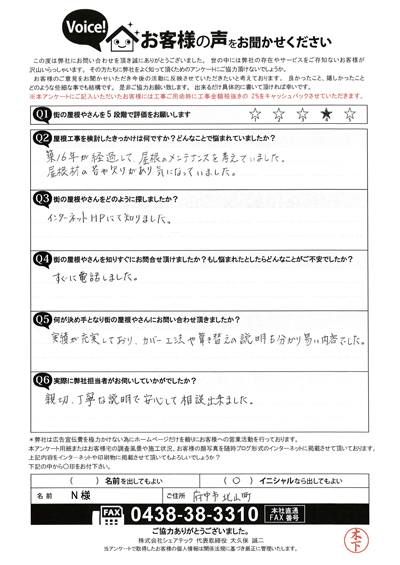 Voice!
お客様の声をお聞かせください
この度は弊社にお問い合わせを頂き誠にありがとうございました。世の中には弊社の存在やサービスをご存知ないお客様が
沢山いらっしゃいます。その方たちに弊社をよく知って頂くためのアンケートにご協力頂けないでしょうか。
お客様のご意見をお聞かせいただき今後の活動に反映させていただきたいと考えております。良かったこと、嬉しかったこと
どのような些細な事でも結構です。是非ご協力お願い致します。出来るだけ具体的に書いて頂ければ幸いです。
※本アンケートにご記入いただいたお客様には工事ご用命時に工事金額税抜きの 2%をキャッシュバックさせていただきます。
Q1 街の屋根やさんを5段階で評価をお願いします ☆ ☆ ☆ ★ ☆
Q2 屋根工事を検討したきっかけは何ですか?どんなことで悩まれていましたか?
築16年が経過して、屋根のメンテナンスを考えていました。
屋根材の苔や欠けがあり気になっていました。
Q3 街の屋根やさんをどのように探しましたか?
インターネットHPにて知りました。
Q4 街の屋根やさんを知りすぐにお問合せ頂けましたか?もし悩まれたとしたらどんなことがご不安でしたか?
すぐに電話しました。
Q5 何が決め手となり街の屋根やさんにお問い合わせ頂きましたか?
実績が充実しており、カバー工法や葺き替えの説明も分かり易い内容でした。
Q6 実際に弊社担当者がお伺いしていかがでしたか?
親切、丁寧な説明で安心して相談出来ました。
＊弊社は広告宣伝費を極力かけない為にホームページだけを頼りにお客様への営業活動を行っております。
本アンケート用紙またはお客様宅の調査風景や施工状況、お客様の顔写真を随時ブログ形式のインターネットに掲載させて頂いております。
上記内容をインターネットや印刷物に掲載させて頂いてもよろしいでしょうか?
下記の中から〇印をお付下さい。
( ) 名前を出してもよい ( 〇 ) イニシャルなら出してもよい
名前 N様 ご住所 府中市北山町
FAX 0438-38-3310 本社直通 FAX番号
ご協力ありがとうございました。
株式会社シェアテック 代表取締役 大久保 誠二
当アンケートで取得したお客様の個人情報は関係法規に基づき厳正に管理いたします。
木下